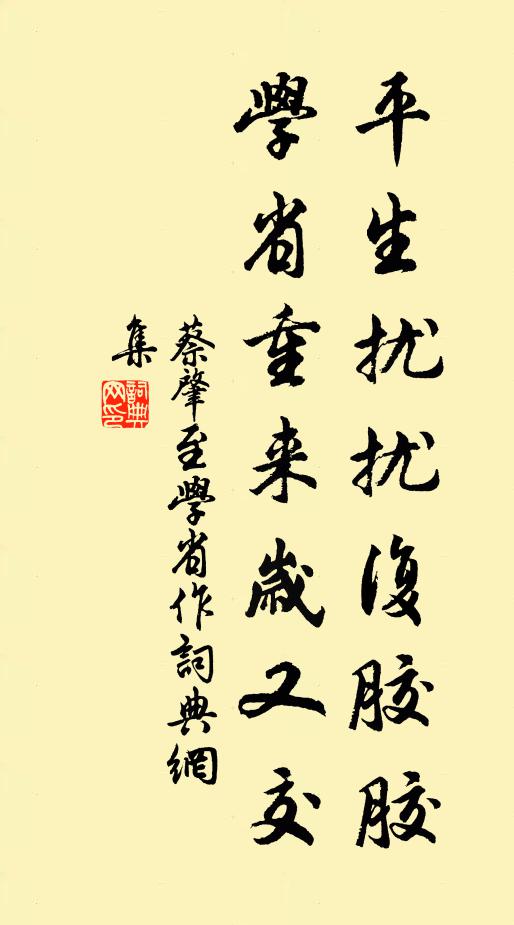 平生扰扰復胶胶
學省重来歲又交
蔡肇至學省作詞典網
集
詞典网印